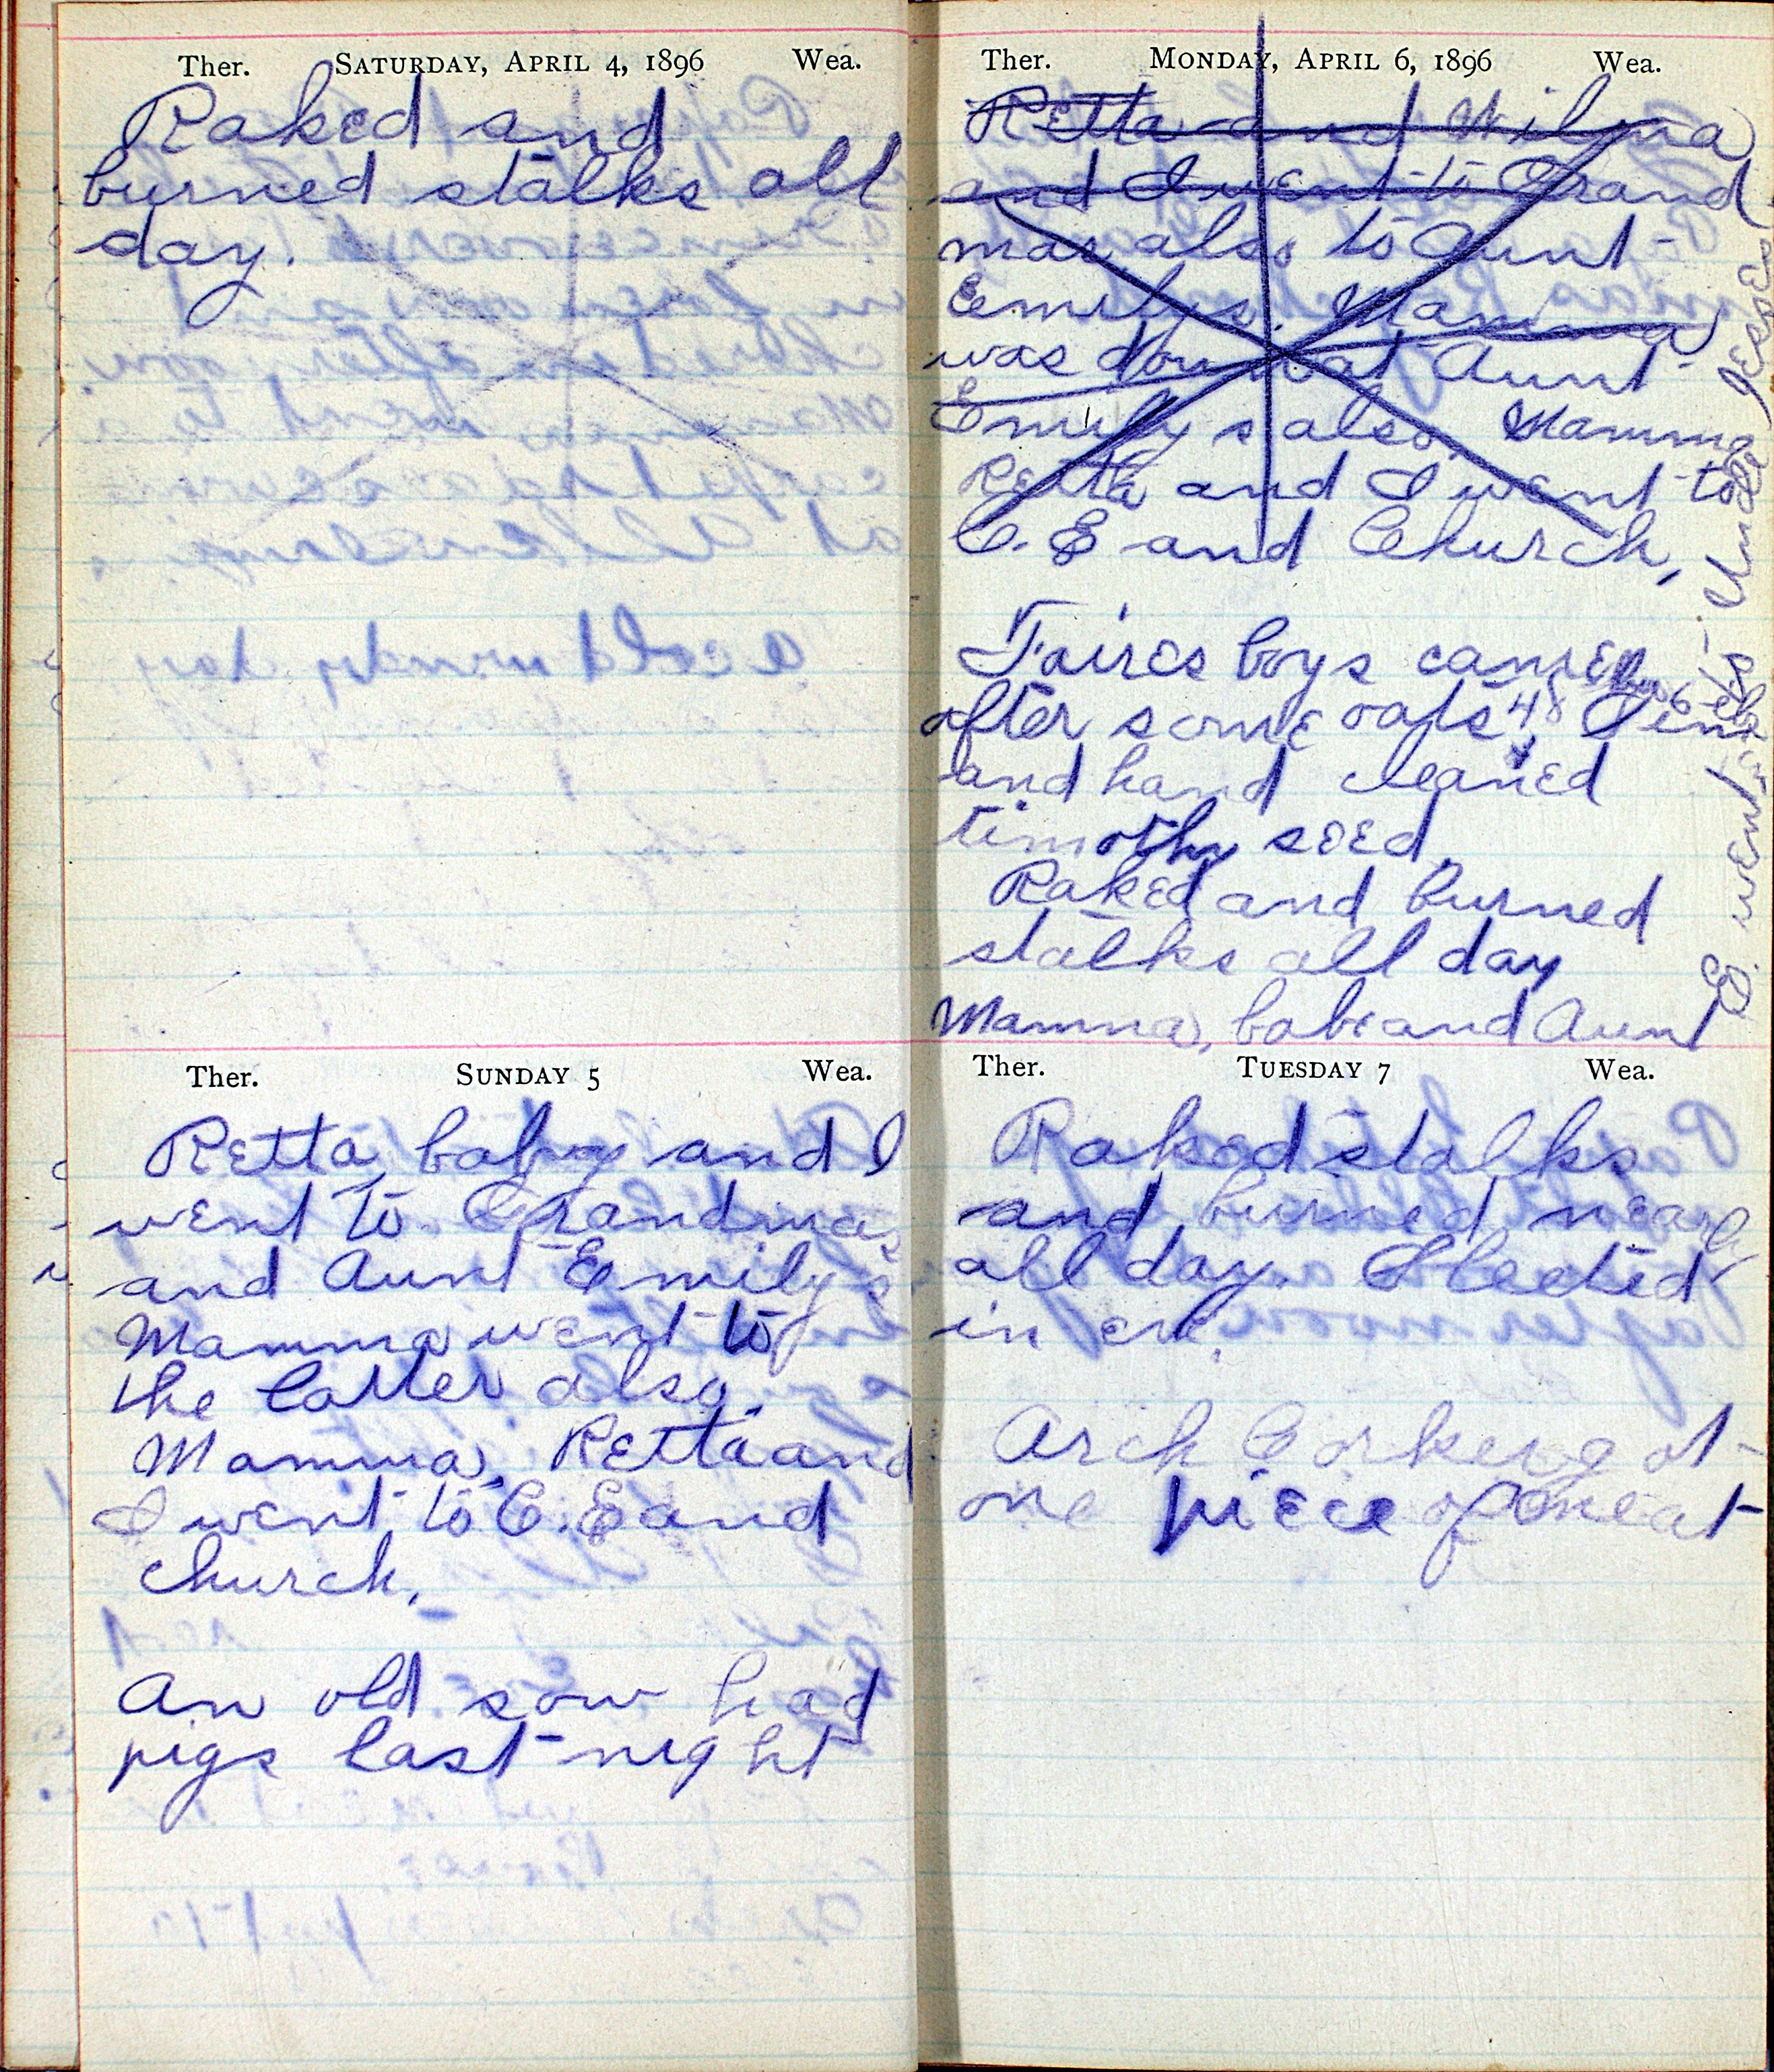 Ther. SATURDAY, APRIL 4, 1896 Wea.
Raked and
burned stalks all
day.
Ther. SUNDAY 5 Wea.
Retta, baby and I
went to Grandma's
and Aunt Emily's
Mamma went to
the latter also.
Mamma, Retta and
I went to C. E and
church.
An old sow had
pigs last night
Ther. MONDAY, APRIL 6, 1896 Wea.
Retta and Wilma
and I went to Grand
mas also to Aunt
Emilys. Mamma
was down at Aunt
Emilys also. Mamma
Retta and I went to
C. E and Church,
Faires boys came
after some oats 48
and hand cleaned
timothy seed.
Raked and burned
stalks all day
Mamma, babe and Aunt
E. went to Uncle Jesse's
Ther. TUESDAY 7 Wea.
Raked stalks
and burned nearly
all day. Sleeted
in eve.
Arch Corken got
one piece of meat